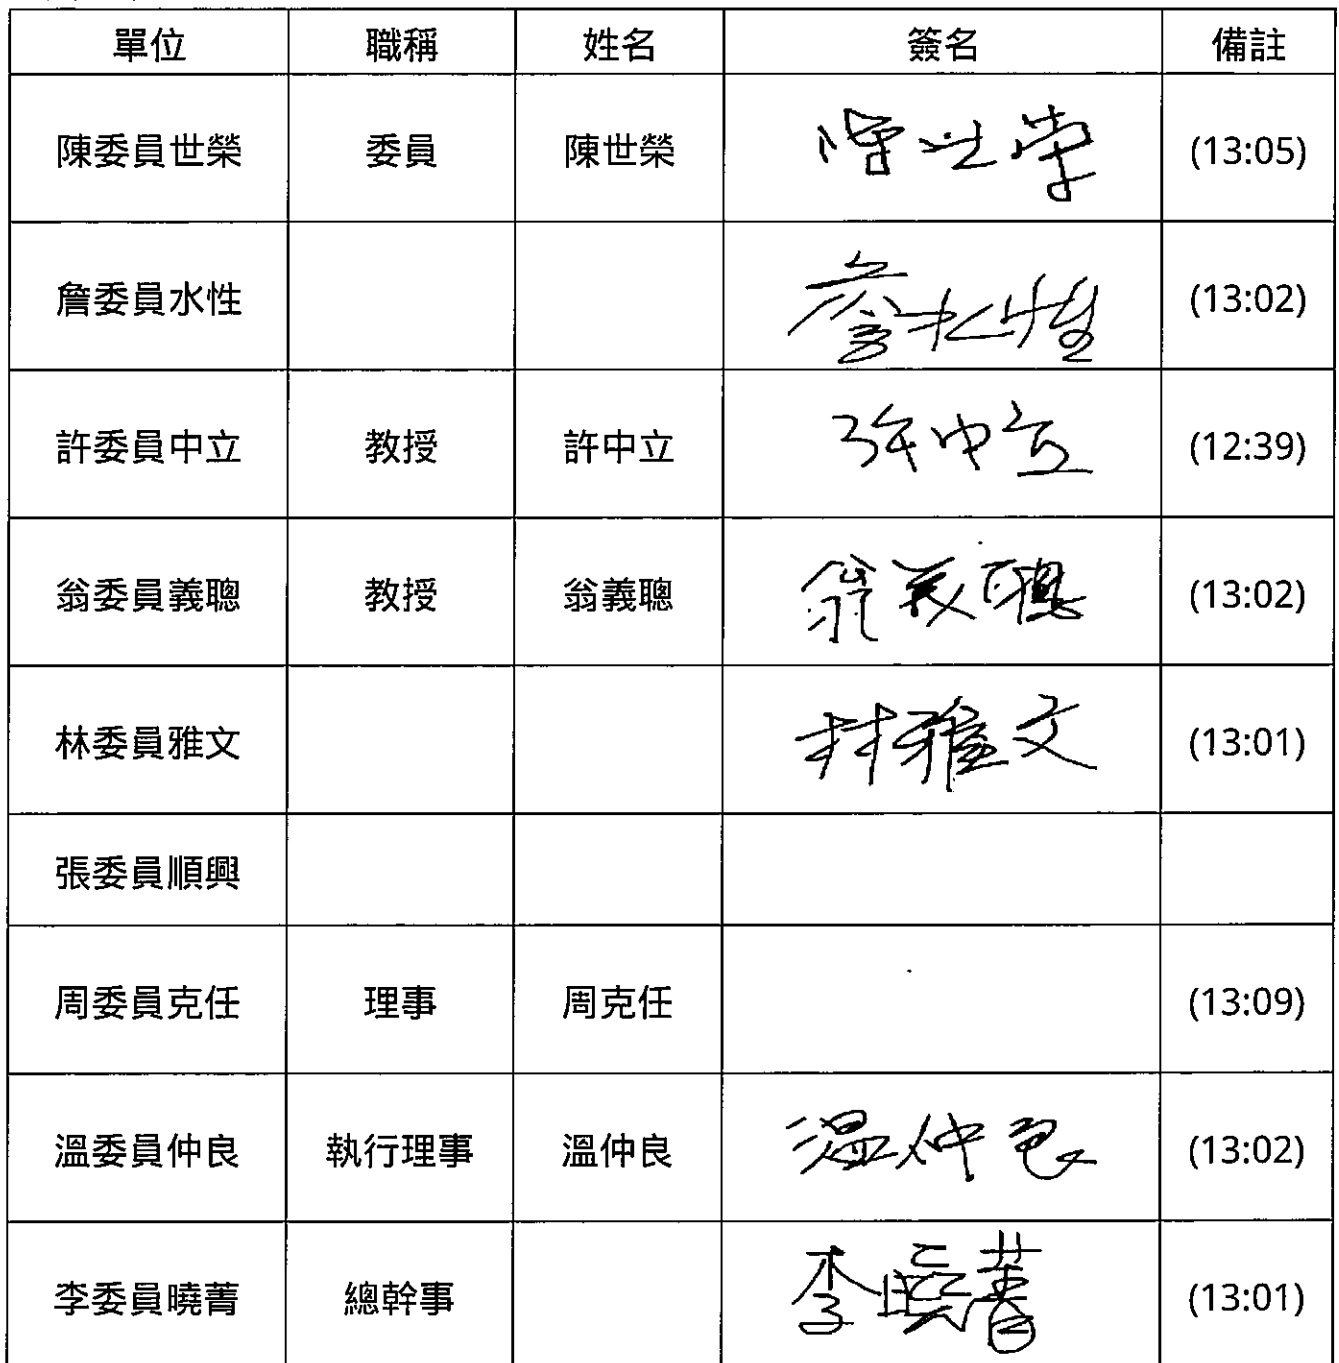 單位 職稱 姓名 簽名 備註
陳委員世榮 委員 陳世榮 陳世榮 (13:05)
詹委員水性 詹水性 (13:02)
許委員中立 教授 許中立 許中立 (12:39)
翁委員義聰 教授 翁義聰 翁義聰 (13:02)
林委員雅文 林雅文 (13:01)
張委員順興
周委員克任 理事 周克任 (13:09)
溫委員仲良 執行理事 溫仲良 温仲良 (13:02)
李委員曉菁 總幹事 李曉菁 (13:01)